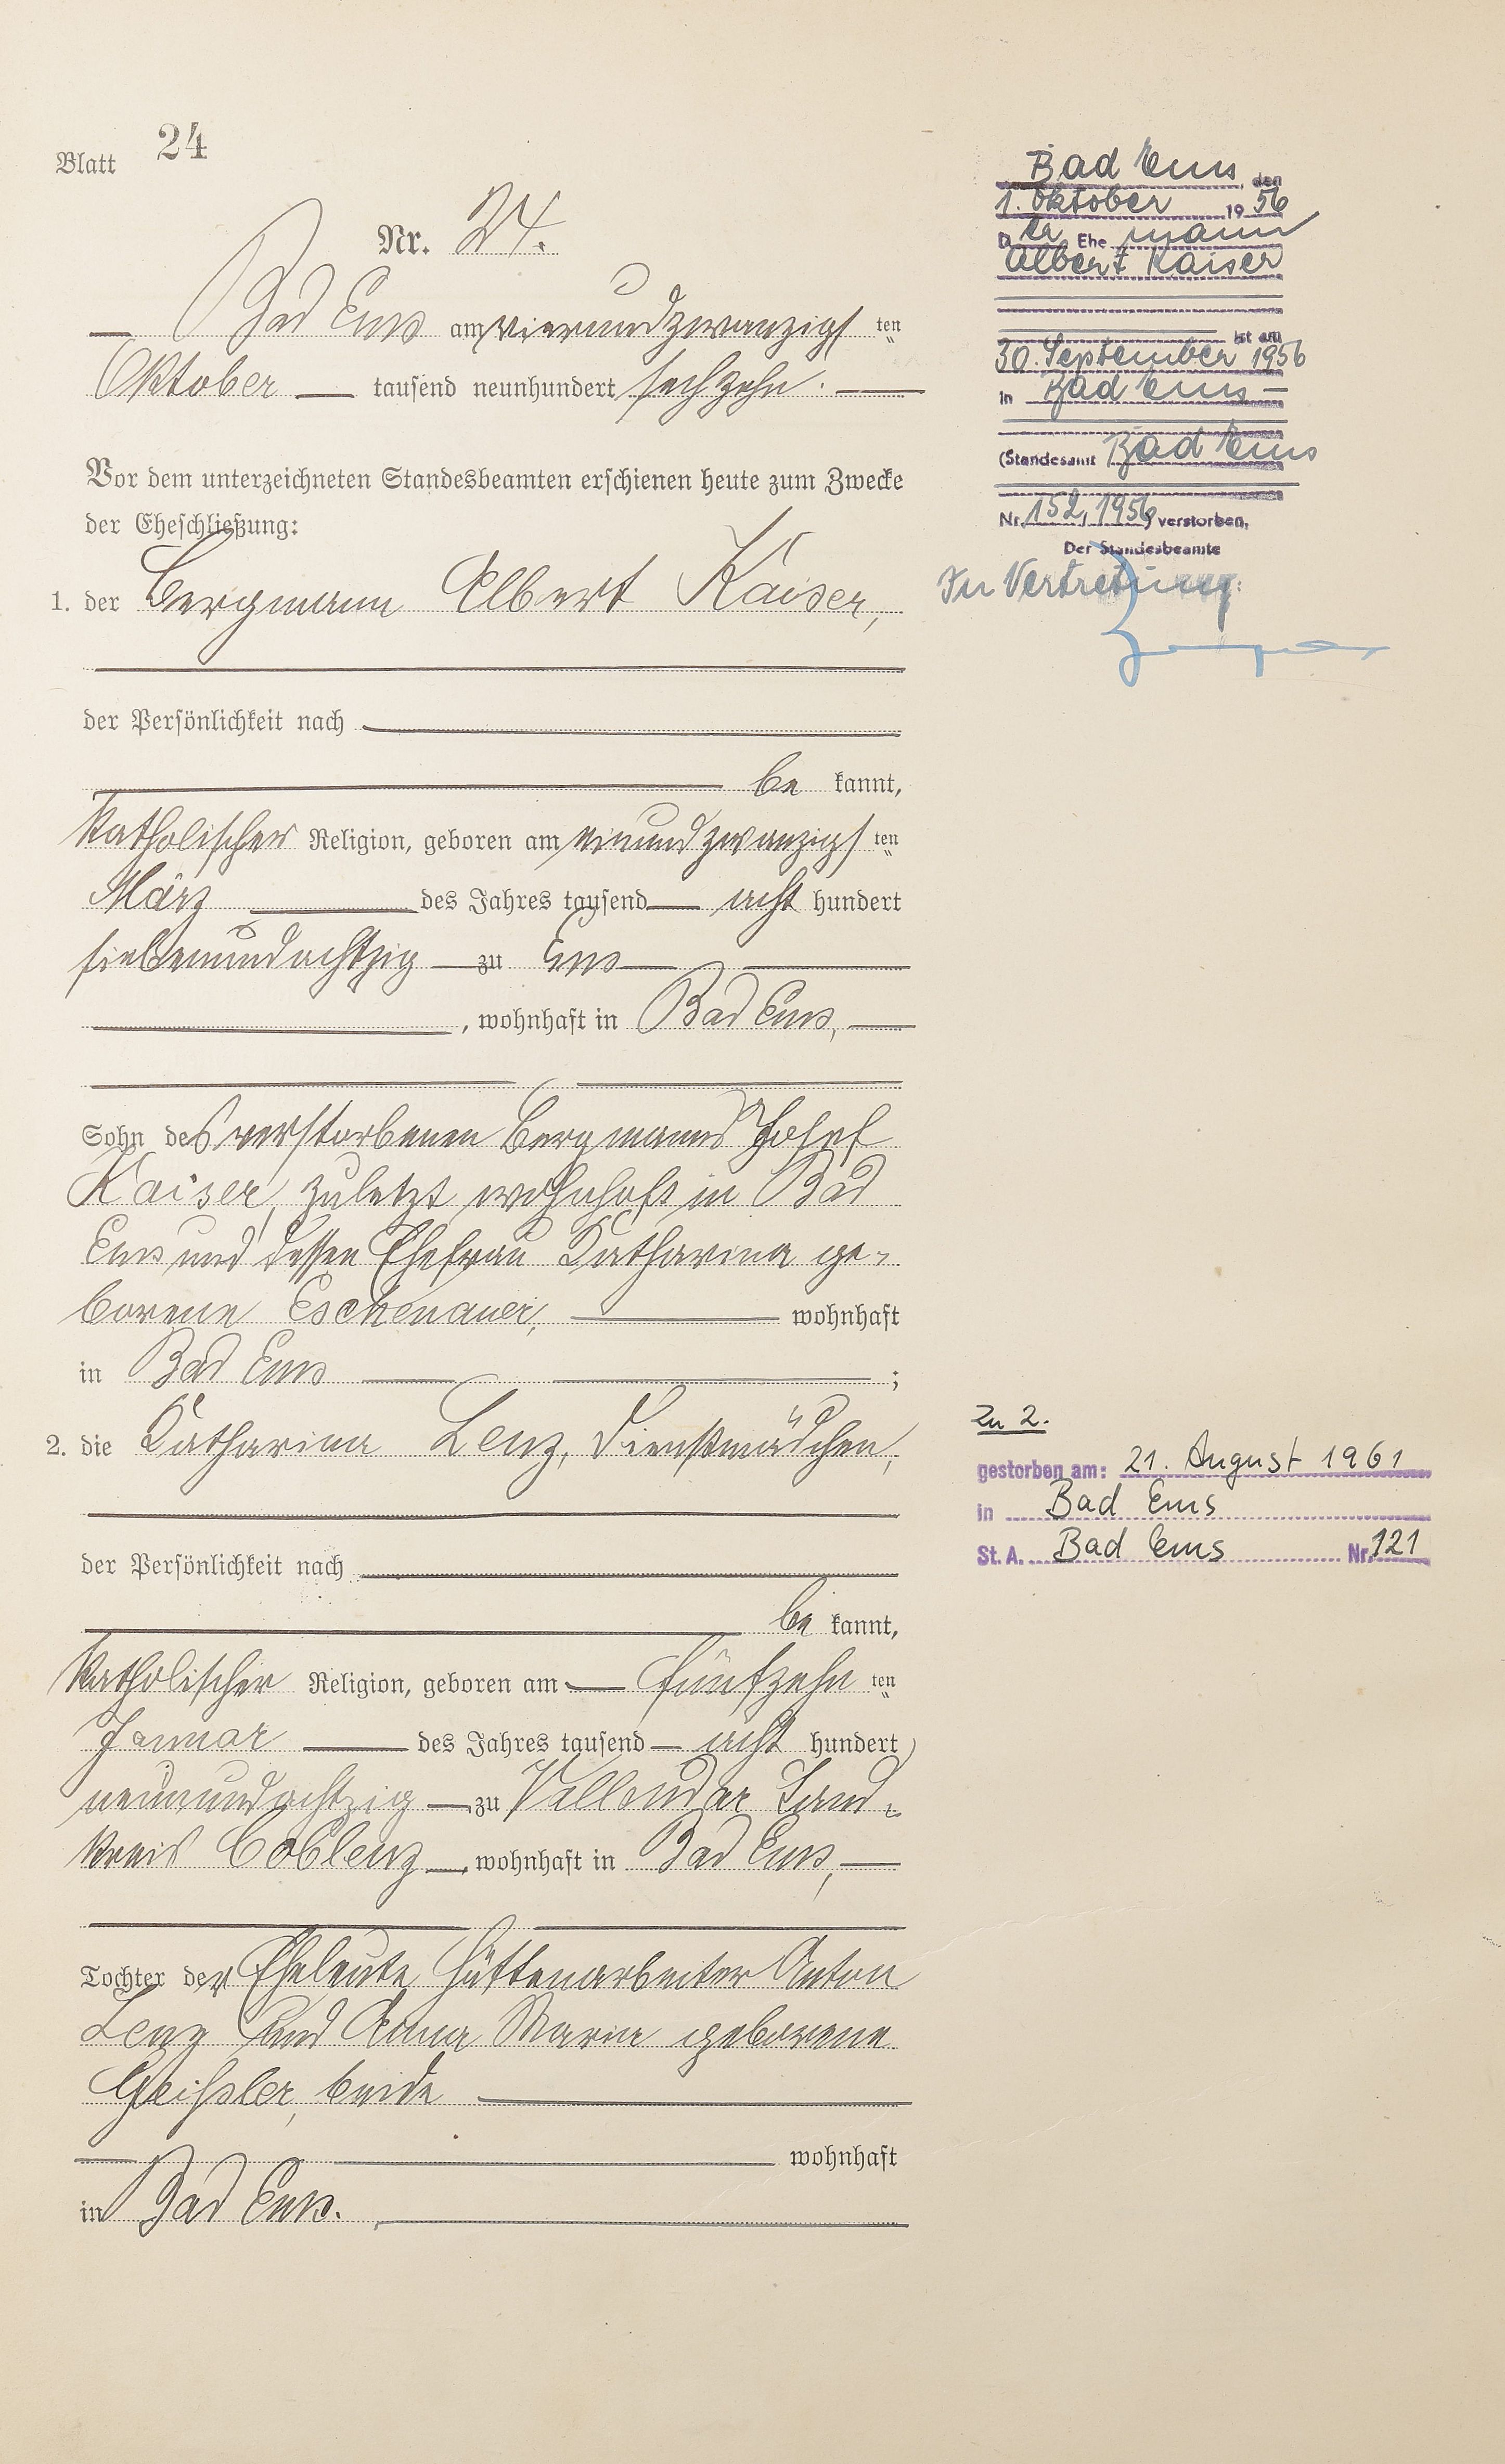 Blatt 24
Nr. 24.
Bad Ems am vierundzwanzigsten
Oktober tausend neunhundert sechzehn.
Vor dem unterzeichneten Standesbeamten erschienen heute zum Zwecke
der Eheschließung:
1. der Bergmann Albert Kaiser,
der Persönlichkeit nach
be kannt,
katholischer Religion, geboren am
März des Jahres tausend acht hundert
siebenundachtzig zu Ems
, wohnhaft in Bad Ems,
Sohn des verstorbenen Bergmanns Josef
Kaiser, zuletzt wohnhaft in Bad
Ems und dessen Ehefrau Katharina ge-
borene Eschenauer, wohnhaft
in Bad Ems ;
2. die Katharina Lenz, Dienstmädchen,
der Persönlichkeit nach
be kannt,
katholischer Religion, geboren am fünfzehn ten
Januar des Jahres tausend acht hundert
neunundachtzig zu Vallendar Land-
kreis Coblenz, wohnhaft in Bad Ems,
Tochter der Eheleute Hüttenarbeiter Anton
Lenz und Anna Maria geborene
Geissler, beide
wohnhaft
in Bad Ems.
Bad Ems, den
1. Oktober 1956
Der Ehemann
Albert Kaiser
ist am
30. September 1956
in Bad Ems
(Standesamt Bad Ems
Nr. 152, 1956) verstorben.
Der Standesbeamte
In Vertretung:
Zu 2.
gestorben am: 21. August 1961
in Bad Ems
St. A. Bad Ems Nr. 121